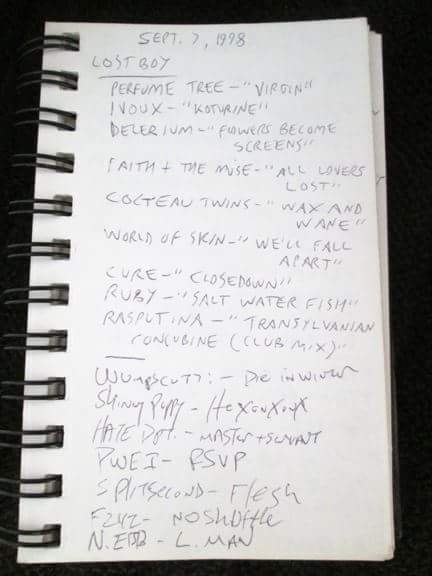 SEPT. 7, 1998
LOST BOY
PERFUME TREE - "VIRGIN"
IVOUX - "KOTURINE"
DELERIUM - "FLOWERS BECOME
SCREENS"
FAITH + THE MUSE - "ALL LOVERS
LOST"
COCTEAU TWINS - "WAX AND
WANE"
WORLD OF SKIN - "WE'LL FALL
APART"
CURE - "CLOSEDOWN"
RUBY - "SALT WATER FISH"
RASPUTINA - "TRANSYLVANIAN
CONCUBINE (CLUB MIX)"
WUMPSCUT: - Die in Winter
Skinny Puppy -
HATE DEPT. - MASTER + SERVANT
PWEI - RSVP
SPLITSECOND - Flesh
F242 - NO SHUFFLE
N. EBB - L. MAN